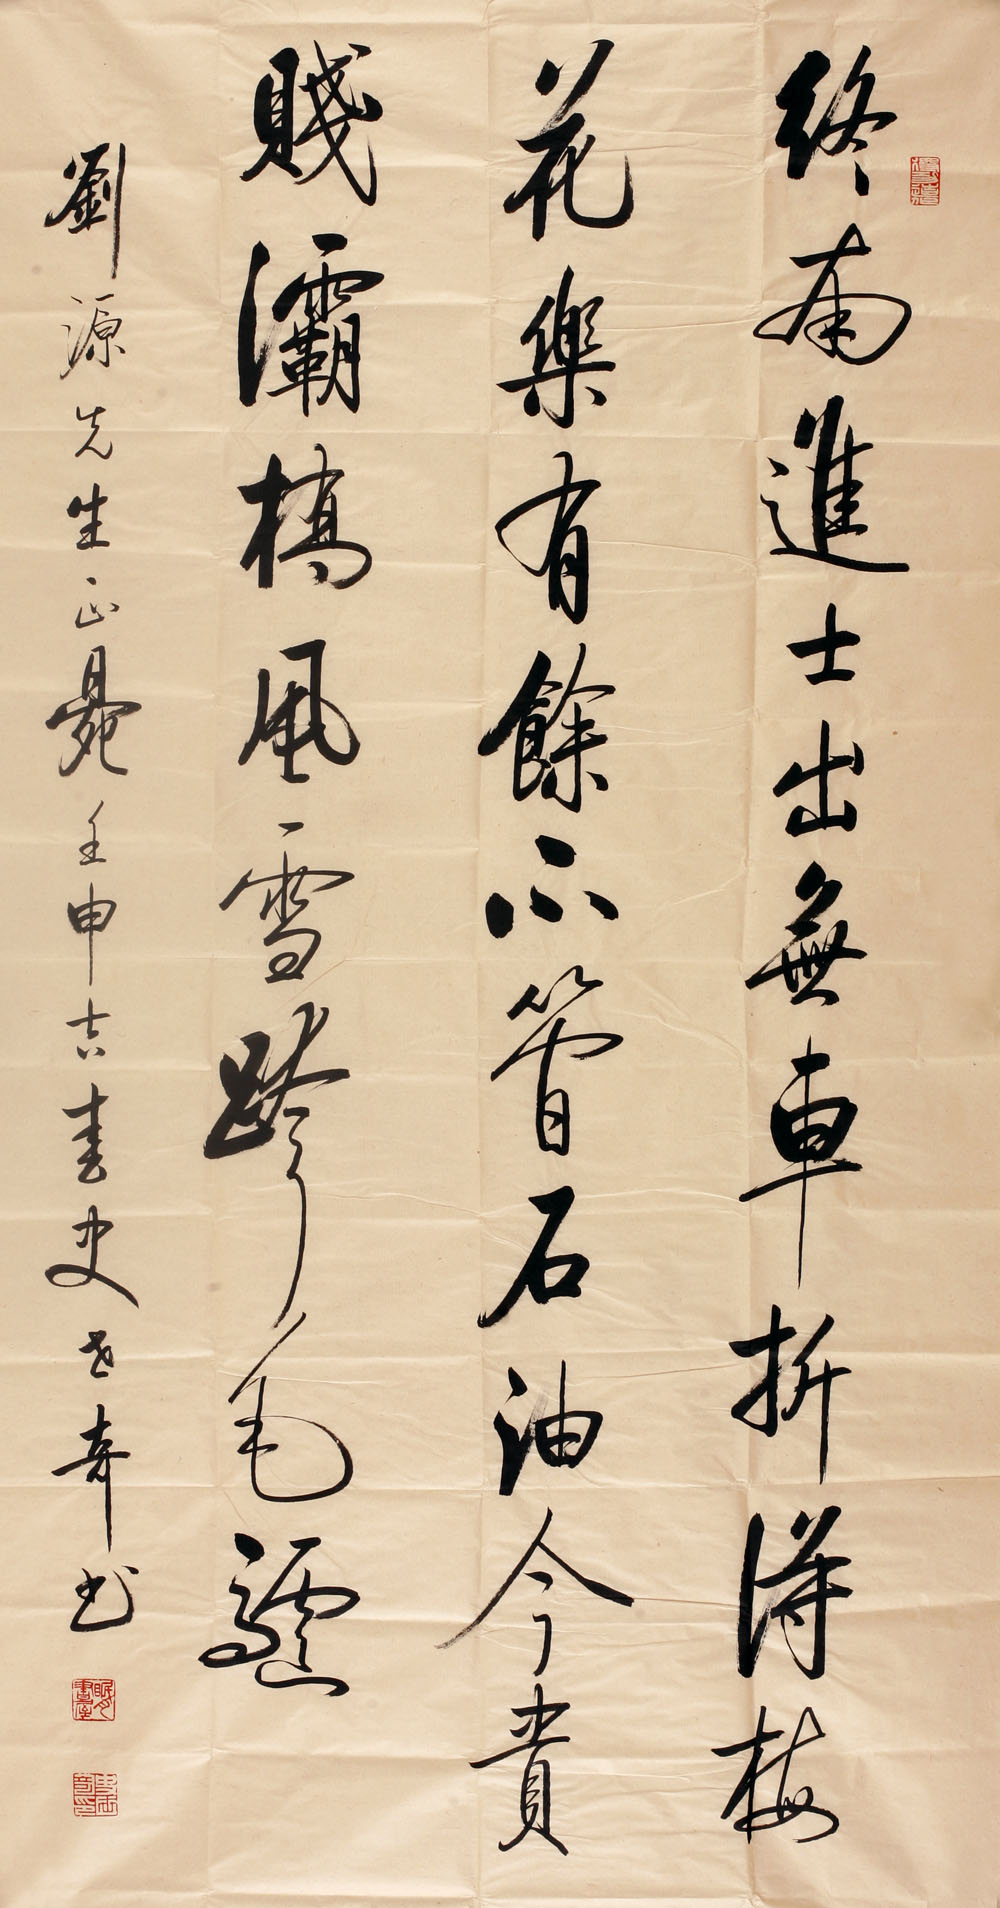 終南進士出無車折得梅
花樂有餘不管石油今貴
賤灞橋風雪跨毛驢
劉源先生正㲋壬申吉春史世奇书